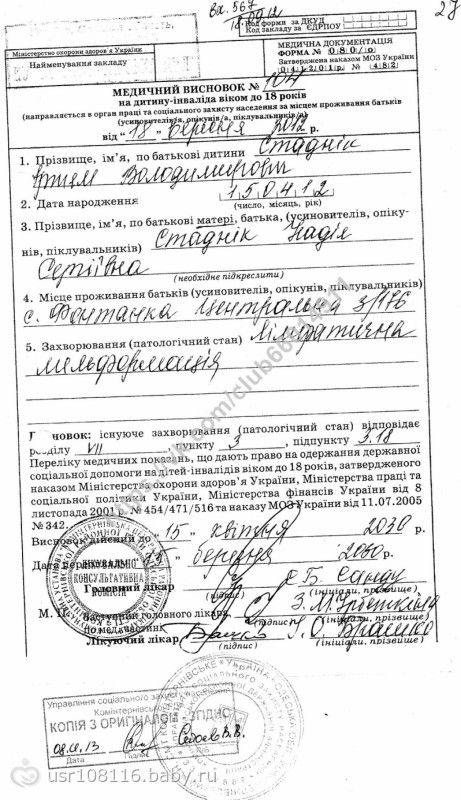 вх. 567
18.09.12
27
Код форми за ДКУД
Код закладу за ЄДРПОУ
Міністерство охорони здоров'я України
Найменування закладу
МЕДИЧНА ДОКУМЕНТАЦІЯ
ФОРМА № 080/о
Затверджена наказом МОЗ України
04 12 01 р. № 482
МЕДИЧНИЙ ВИСНОВОК № 104
на дитину-інваліда віком до 18 років
(направляється в орган праці та соціального захисту населення за місцем проживання батьків
(усиновителів/я, опікунів/а, піклувальників/а)
від "18" Вересня 2012 р.
1. Прізвище, ім'я, по батькові дитини Стаднік
Артем Володимирович
2. Дата народження 150412
(число, місяць, рік)
3. Прізвище, ім'я, по батькові матері, батька, (усиновителів, опіку-
нів, піклувальників) Стаднік Надія
Сергіївна
(необхідне підкреслити)
4. Місце проживання батьків (усиновителів, опікунів, піклувальників)
с. Фонтанка Центральна 3/176
5. Захворювання (патологічний стан) Лімфатична
мальформація
Висновок: існуюче захворювання (патологічний стан) відповідає
розділу VII, пункту 3, підпункту 3.18
Переліку медичних показань, що дають право на одержання державної
соціальної допомоги на дітей-інвалідів віком до 18 років, затвердженого
наказом Міністерства охорони здоров'я України, Міністерства праці та
соціальної політики України, Міністерства фінансів України від 8
листопада 2001 р. № 454/471/516 та наказу МОЗ України від 11.07.2005
№ 342.
Висновок дійсний до "15" квітня 2030 р.
Дата березня 2030 р.
Головний лікар
(підпис) (ініціали, прізвище)
М. П. Заступник головного лікаря
по медчастині
(ініціали, прізвище)
Лікуючий лікар
(підпис) (ініціали, прізвище)
ЛІКУВАЛЬНО
КОНСУЛЬТАТИВНА
КОМІСІЯ
Управління соціального захисту
КОПІЯ З ОРИГІНАЛОМ ЗГІДНО
08.10.13
Дата Підпис
usr108116.baby.ru